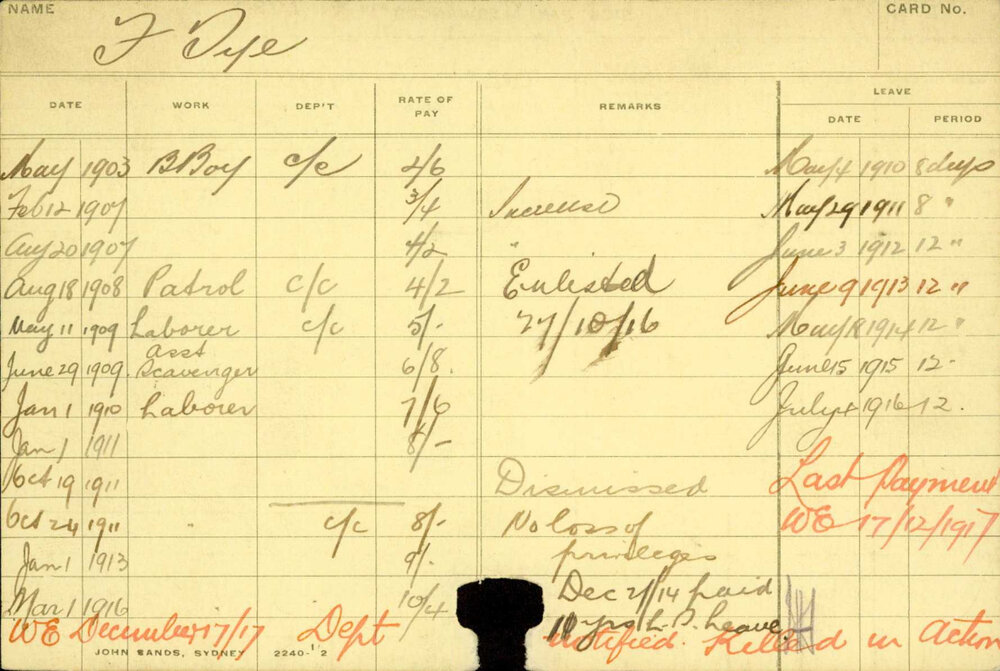 NAME CARD No.
F Dye
DATE WORK DEP'T RATE OF PAY REMARKS LEAVE
DATE PERIOD
May 1903 B Boy c/c 2/6 May 4 1910 8 days
Feb 12 1907 3/4 Increase May 29 1911 8 "
Aug 20 1907 4/2 " June 3 1912 12 "
Aug 18 1908 Patrol c/c 4/2 Enlisted June 9 1913 12 "
May 11 1909 Laborer c/c 5/- 27/10/16 May 18 1914 12 "
June 29 1909 Asst Scavenger 6/8 June 15 1915 12 -
Jan 1 1910 Laborer 7/6 July 4 1916 12.
Jan 1 1911 8/-
Oct 19 1911 Dismissed Last Payment
Oct 24 1911 " c/c 8/- No loss of WE 17/12/1917
Jan 1 1913 9/- privileges
Mar 1 1916 10/4 Dec 21/14 paid
10 yrs L.S. Leave
WE December 17/17 Dept notified. Killed in action
JOHN SANDS, SYDNEY 2240-1/2